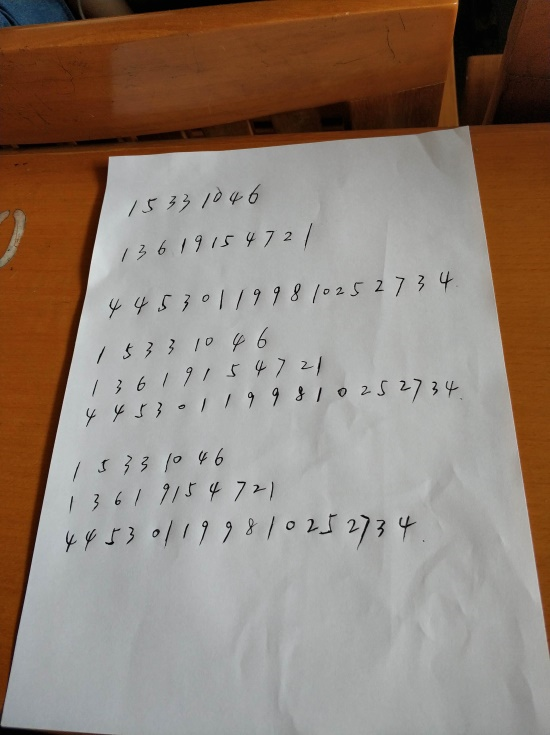 15331046
13619154721
445301199810252734
15331046
13619154721
445301199810252734.
15331046
13619154721
445301199810252734.